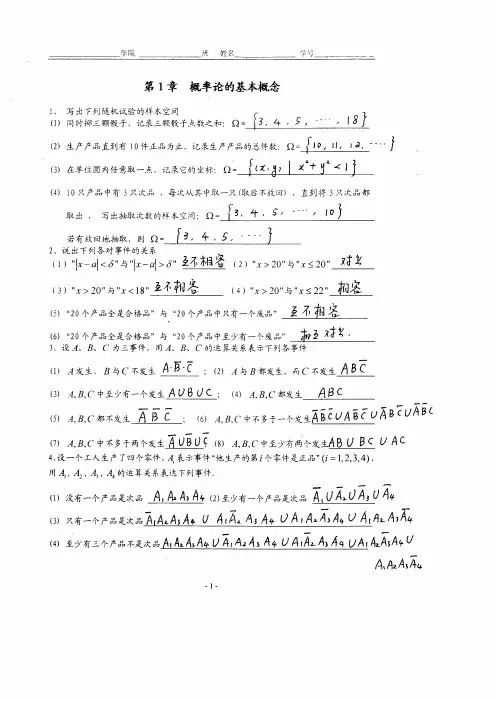 学院 班 姓名 学号
第 1 章 概率论的基本概念
1、 写出下列随机试验的样本空间
(1) 同时掷三颗骰子,记录三颗骰子点数之和: Ω= {3, 4, 5, ····, 18}
(2) 生产产品直到有 10 件正品为止,记录生产产品的总件数: Ω= {10, 11, 12, ····}
(3) 在单位圆内任意取一点,记录它的坐标: Ω= {(x,y) | x²+y²<1}
(4) 10 只产品中有 3 只次品 ,每次从其中取一只(取后不放回) ,直到将 3 只次品都
取出 , 写出抽取次数的样本空间: Ω= {3, 4, 5, ····, 10}
若有放回地抽取,则 Ω= {3, 4, 5, ····}
2、说出下列各对事件的关系
(1) "|x−a|<δ" 与 "|x−a|>δ" 互不相容 (2) "x>20" 与 "x≤20" 对立
(3) "x>20" 与 "x<18" 互不相容 (4) "x>20" 与 "x≤22" 相容
(5) “20 个产品全是合格品” 与 “20 个产品中只有一个废品” 互不相容
(6) “20 个产品全是合格品” 与 “20 个产品中至少有一个废品” 相互对立
3、设 A、B、C 为三事件,用 A、B、C 的运算关系表示下列各事件
(1) A 发生, B 与 C 不发生 A·B̅·C̅ ; (2) A 与 B 都发生,而 C 不发生 ABC̅
(3) A,B,C 中至少有一个发生 A∪B∪C ; (4) A,B,C 都发生 ABC
(5) A,B,C 都不发生 A̅ B̅ C̅ ; (6) A,B,C 中不多于一个发生 A̅B̅C̅∪AB̅C̅∪A̅BC̅∪A̅B̅C
(7) A,B,C 中不多于两个发生 A̅∪B̅∪C̅ (8) A,B,C 中至少有两个发生 AB∪BC∪AC
4.设一个工人生产了四个零件, Aᵢ 表示事件“他生产的第 i 个零件是正品” (i=1,2,3,4),
用 A₁, A₂, A₃, A₄ 的运算关系表达下列事件.
(1) 没有一个产品是次品 A₁A₂A₃A₄ (2)至少有一个产品是次品 A̅₁∪A̅₂∪A̅₃∪A̅₄
(3) 只有一个产品是次品 A̅₁A₂A₃A₄ ∪ A₁A̅₂A₃A₄ ∪ A₁A₂A̅₃A₄ ∪ A₁A₂A₃A̅₄
(4) 至少有三个产品不是次品 A₁A₂A₃A₄ ∪ A̅₁A₂A₃A₄ ∪ A₁A̅₂A₃A₄ ∪ A₁A₂A̅₃A₄ ∪
A₁A₂A₃A̅₄
- 1 -